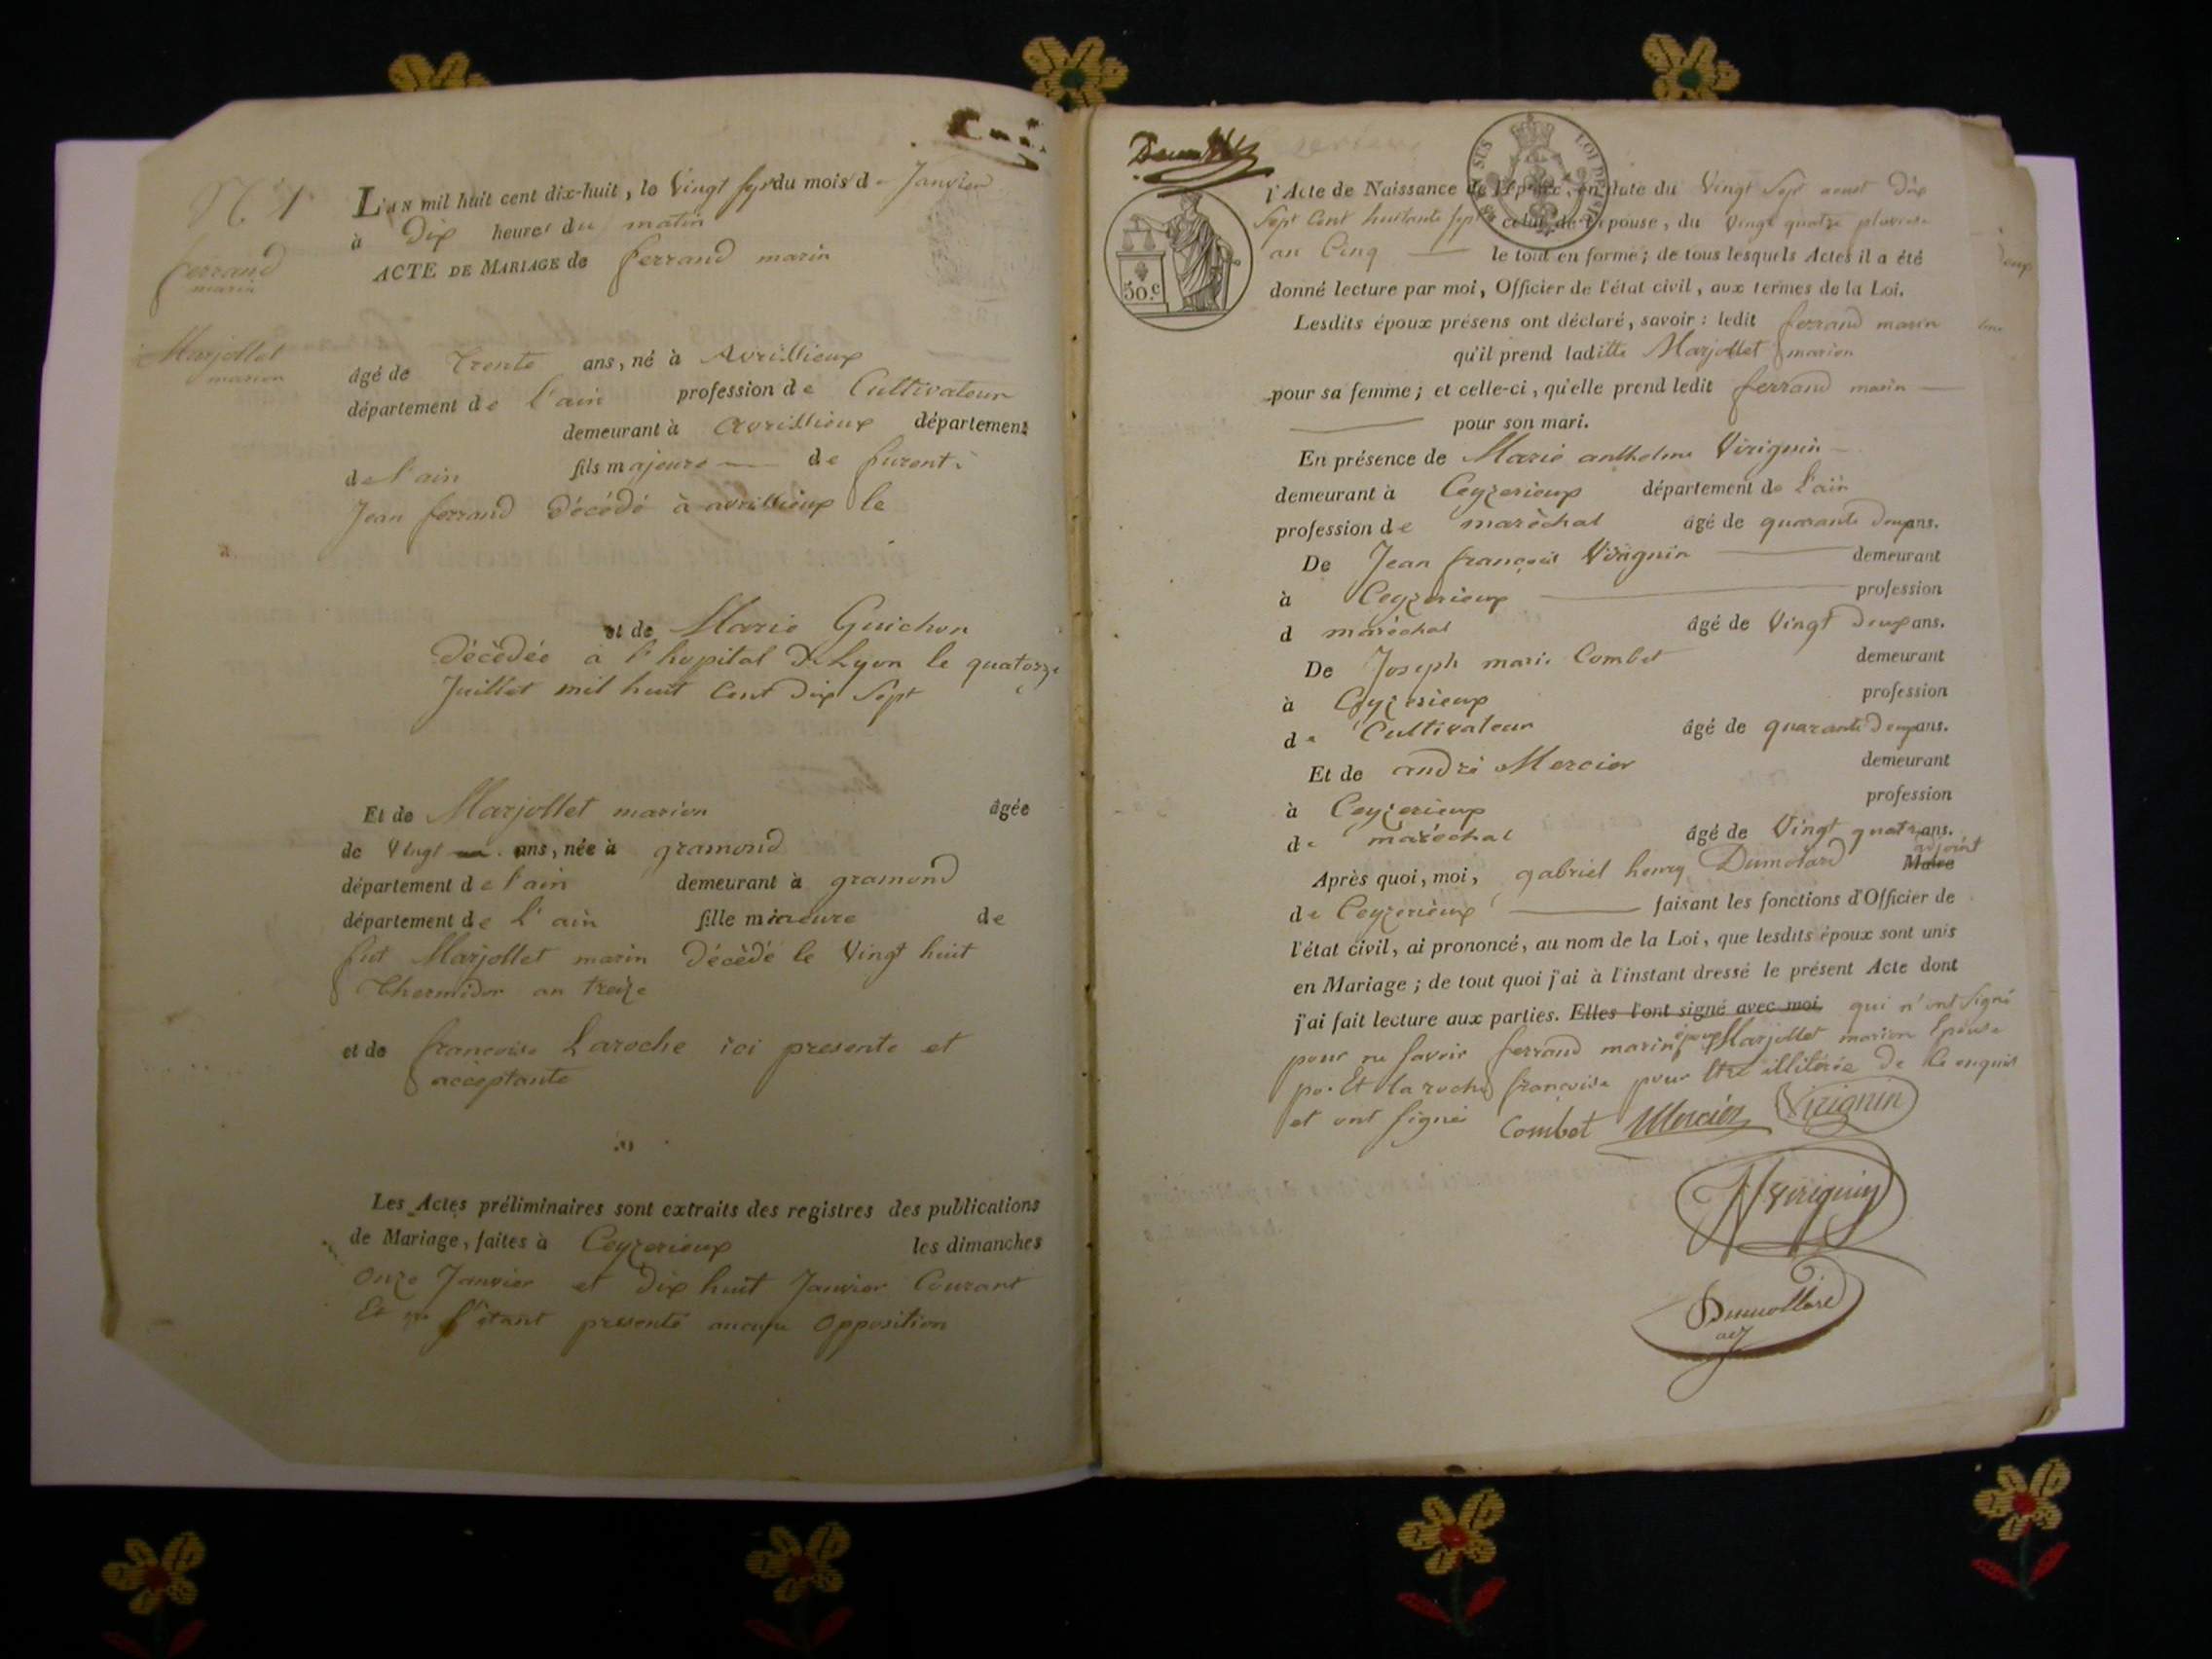 N.º 1
ferrand
marin
Marjollet
marion
L'AN mil huit cent dix-huit, le Vingt sept du mois de Janvier
à Dix heures du matin
ACTE DE MARIAGE de ferrand marin
âgé de trente ans, né à Avrillieux
département de l'ain profession de Cultivateur
demeurant à avrillieux département
de l'ain fils majeure de
Jean ferrand décédé à avrillieux le
et de Marie Guichon
décédée à l'hopital de Lyon le quatorze
Juillet mil huit Cent dix Sept
Et de Marjollet marion âgée
de Vingt ans, née à gramond
département de l'ain demeurant à gramond
département de l'ain fille mineure de
fut Marjollet marin décédé le Vingt huit
thermidor an treize
et de francoise Laroche ici presente et
acceptante
Les Actes préliminaires sont extraits des registres des publications
de Mariage, faites à Ceyzerieux les dimanches
onze Janvier et dix huit Janvier Courant
Et ne s'étant presenté aucune opposition
SUS
LOI DE
50.c
l'Acte de Naissance de l'époux, en date du Vingt Sept aoust dix
Sept Cent huitante sept celui de l'épouse, du Vingt quatre pluviose
an Cinq le tout en forme; de tous lesquels Actes il a été
donné lecture par moi, Officier de l'état civil, aux termes de la Loi.
Lesdits époux présens ont déclaré, savoir: ledit ferrand marin
qu'il prend laditte Marjollet marion
pour sa femme; et celle-ci, qu'elle prend ledit ferrand marin
pour son mari.
En présence de Marie anthelme Virignin
demeurant à Ceyzerieux département de l'ain
profession de maréchal âgé de quarante deux ans.
De Jean françois Virignin demeurant
à Ceyzerieux profession
d maréchal âgé de Vingt deux ans.
De Joseph marie Combet demeurant
à Ceyzerieux profession
de Cultivateur âgé de quarante deux ans.
Et de andré Mercier demeurant
à Ceyzerieux profession
de maréchal âgé de Vingt quatre ans.
adjoint
Après quoi, moi, gabriel henry Dumolard Maire
de Ceyzerieux faisant les fonctions d'Officier de
l'état civil, ai prononcé, au nom de la Loi, que lesdits époux sont unis
en Mariage; de tout quoi j'ai à l'instant dressé le présent Acte dont
j'ai fait lecture aux parties. Elles l'ont signé avec moi. qui n'ont signé
pour ne savoir ferrand marin époux Marjollet marion Epouse
Et la roche francoise pour être illitérée de ce enquis
et ont signé Combet Mercier Virignin
Jf virignin
Dumollard
adj